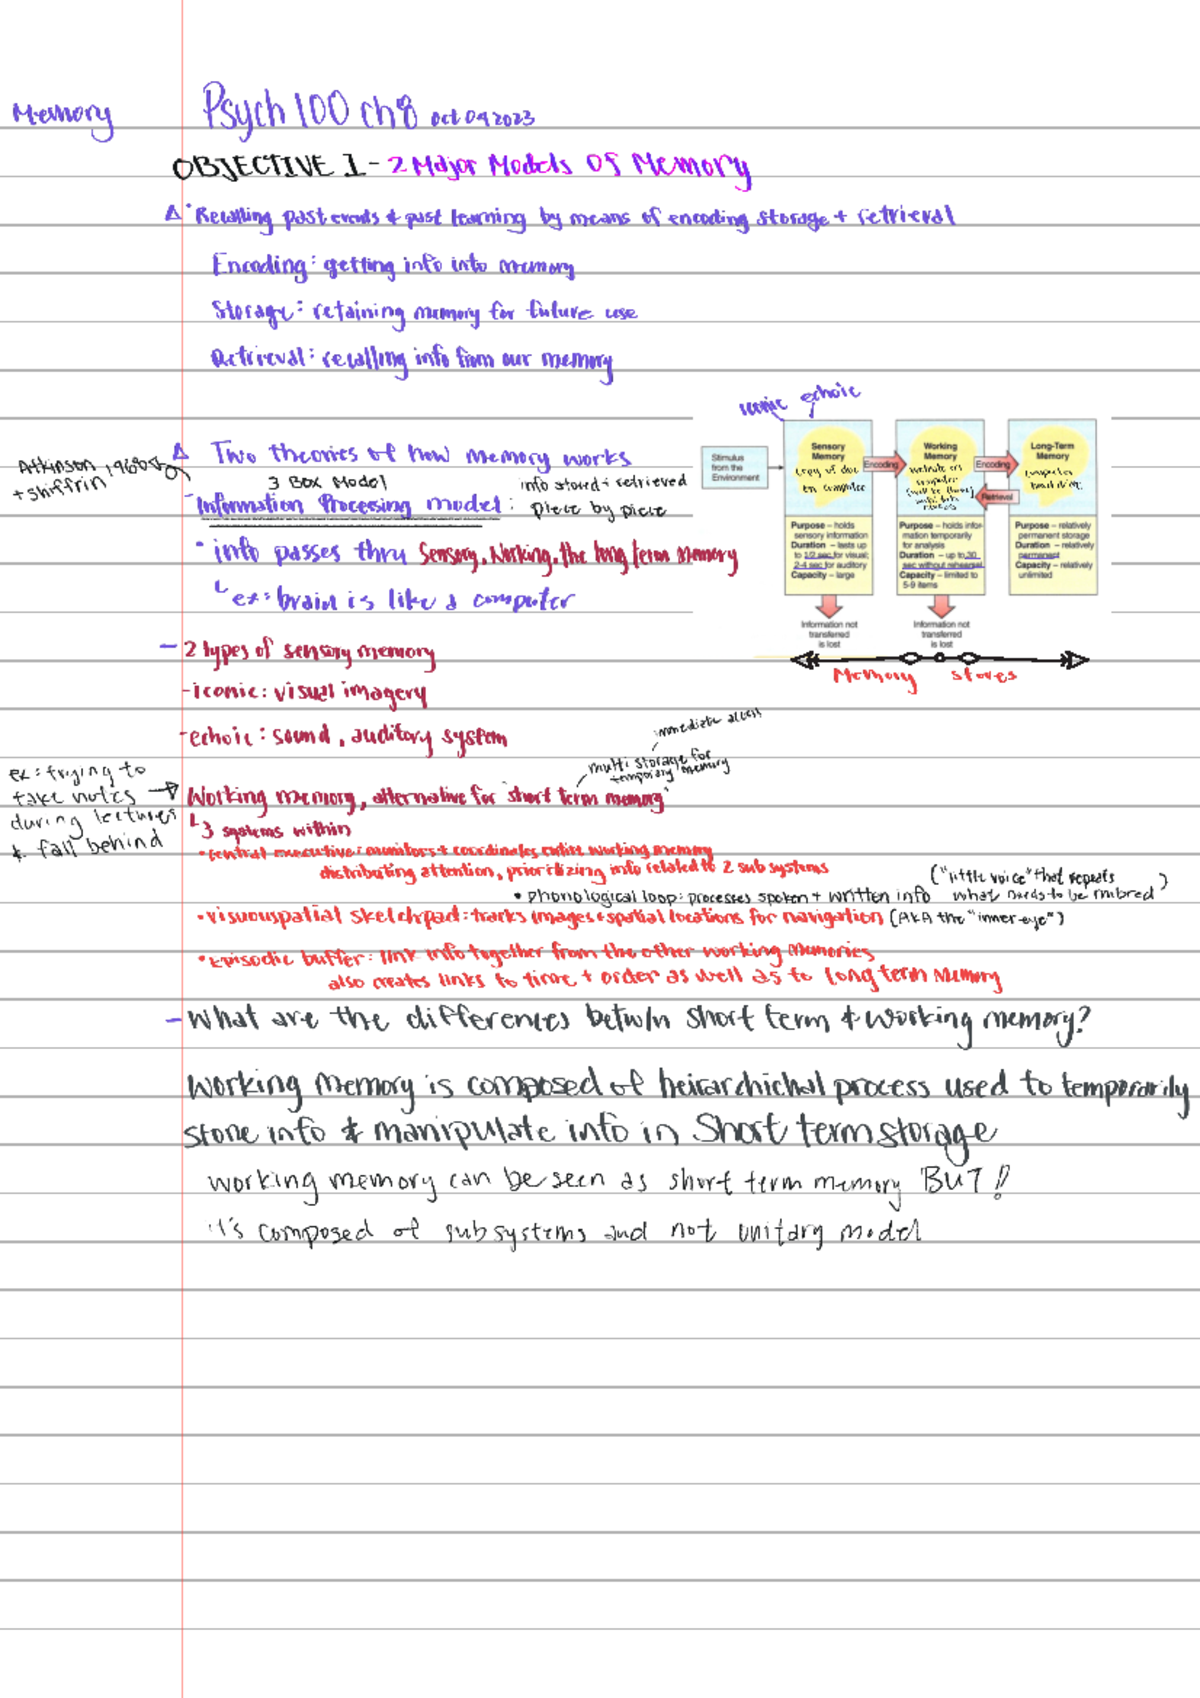 Memory
Psych 100 ch8 oct 04 2023
OBJECTIVE 1 - 2 Major Models Of Memory
Δ · Recalling past events & past learning by means of encoding storage + retrieval
Encoding: getting info into memory
Storage: retaining memory for future use
Retrieval: recalling info from our memory
iconic echoic
Stimulus from the Environment
Sensory Memory
copy of doc on computer
Encoding
Working Memory
website on computer
Encoding
Retrieval
Long-Term Memory
computer hard drive
Purpose – holds sensory information
Duration – lasts up to 1/2 sec for visual; 2-4 sec for auditory
Capacity – large
Purpose – holds information temporarily for analysis
Duration – up to 30 sec without rehearsal
Capacity – limited to 5-9 items
Purpose – relatively permanent storage
Duration – relatively permanent
Capacity – relatively unlimited
Information not transferred is lost
Information not transferred is lost
Memory stores
Atkinson 1968
+ shiffrin
Δ Two theories of how memory works
3 Box Model
info stored + retrieved
- Information Processing model: piece by piece
· info passes thru Sensory, Working, the long term Memory
ex: brain is like a computer
- 2 types of sensory memory
- iconic: visual imagery
- echoic: sound, auditory system
immediate access
multi storage for
temporary memory
ex: trying to
take notes
during lectures
& fall behind
Working memory, alternative for "short term memory"
3 systems within
· central executive: monitors + coordinates entire working memory
distributing attention, prioritizing info related to 2 sub systems
("little voice" that repeats
• phonological loop: processes spoken + written info what needs to be rmbred )
· visuouspatial sketchpad: tracks images + spatial locations for navigation (AKA the "inner-eye")
· Episodic buffer: link info together from the other working memories
also creates links to time + order as well as to long term memory
- What are the differences betw/n short term & working memory?
working memory is composed of heirarchichal process used to temporarily
store info & manipulate info in short term storage
working memory can be seen as short term memory BUT!!
it's composed of subsystems and not unitary model